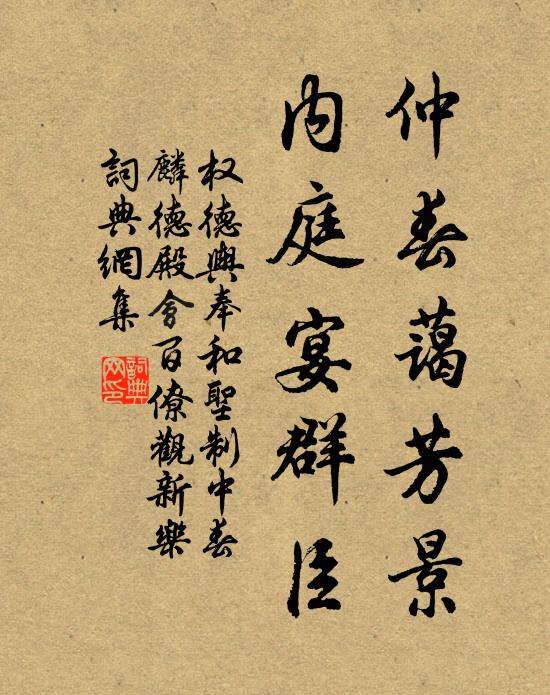 仲春蔼芳景
内庭宴群臣
权德舆奉和聖制中春
麟德殿會百僚觀新樂
詞典網集
詞典網印